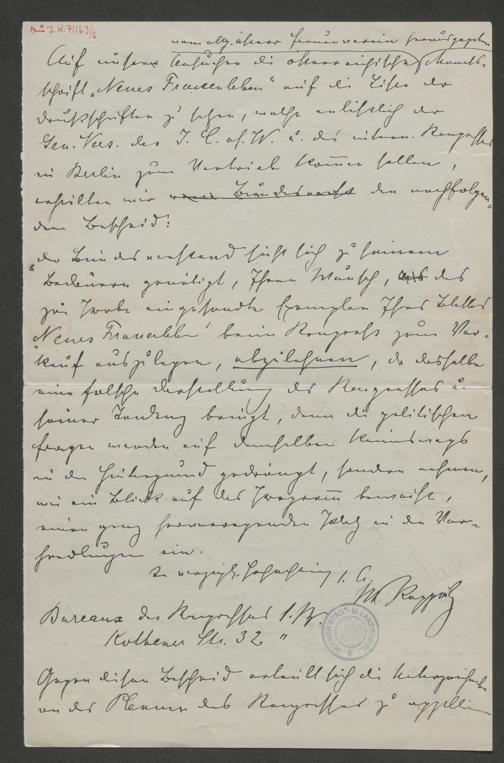 I N. 71163/2
vom allg. österr. Frauenverein herausgegebene
Auf unser Ansuchen die österreichische Monats-
schrift „Neues Frauenleben" auf die Liste der
Druckschriften zu setzen, welche anläßlich der
Gen. Vers. des I. C. of. W. u. des intern. Kongresses
in Berlin zum Vertrieb kommen sollen,
erhielten wir den nachfolgen-
den Bescheid:
„Der Bundesvorstand sieht sich zu seinem
Bedauern genötigt, Ihren Wunsch, das
zur Probe eingesandte Exemplar Ihres Blattes
„Neues Frauenleben" beim Kongreß zum Ver-
kauf auszulegen, abzulehnen, da dasselbe
eine falsche Darstellung des Kongresses u.
seiner Tendenz bringt, denn die politischen
Fragen werden auf demselben keineswegs
in den Hintergrund gedrängt, sondern nehmen,
wie ein Blick auf das Programm beweist,
einen ganz hervorragenden Platz in den Ver-
handlungen ein.
In vorzügl. Hochachtung
Bureau des Kongresses
Kothener Str. 32 "
Gegen diesen Bescheid erlaubt sich die
an das Plenum des Kongresses zu appellieren